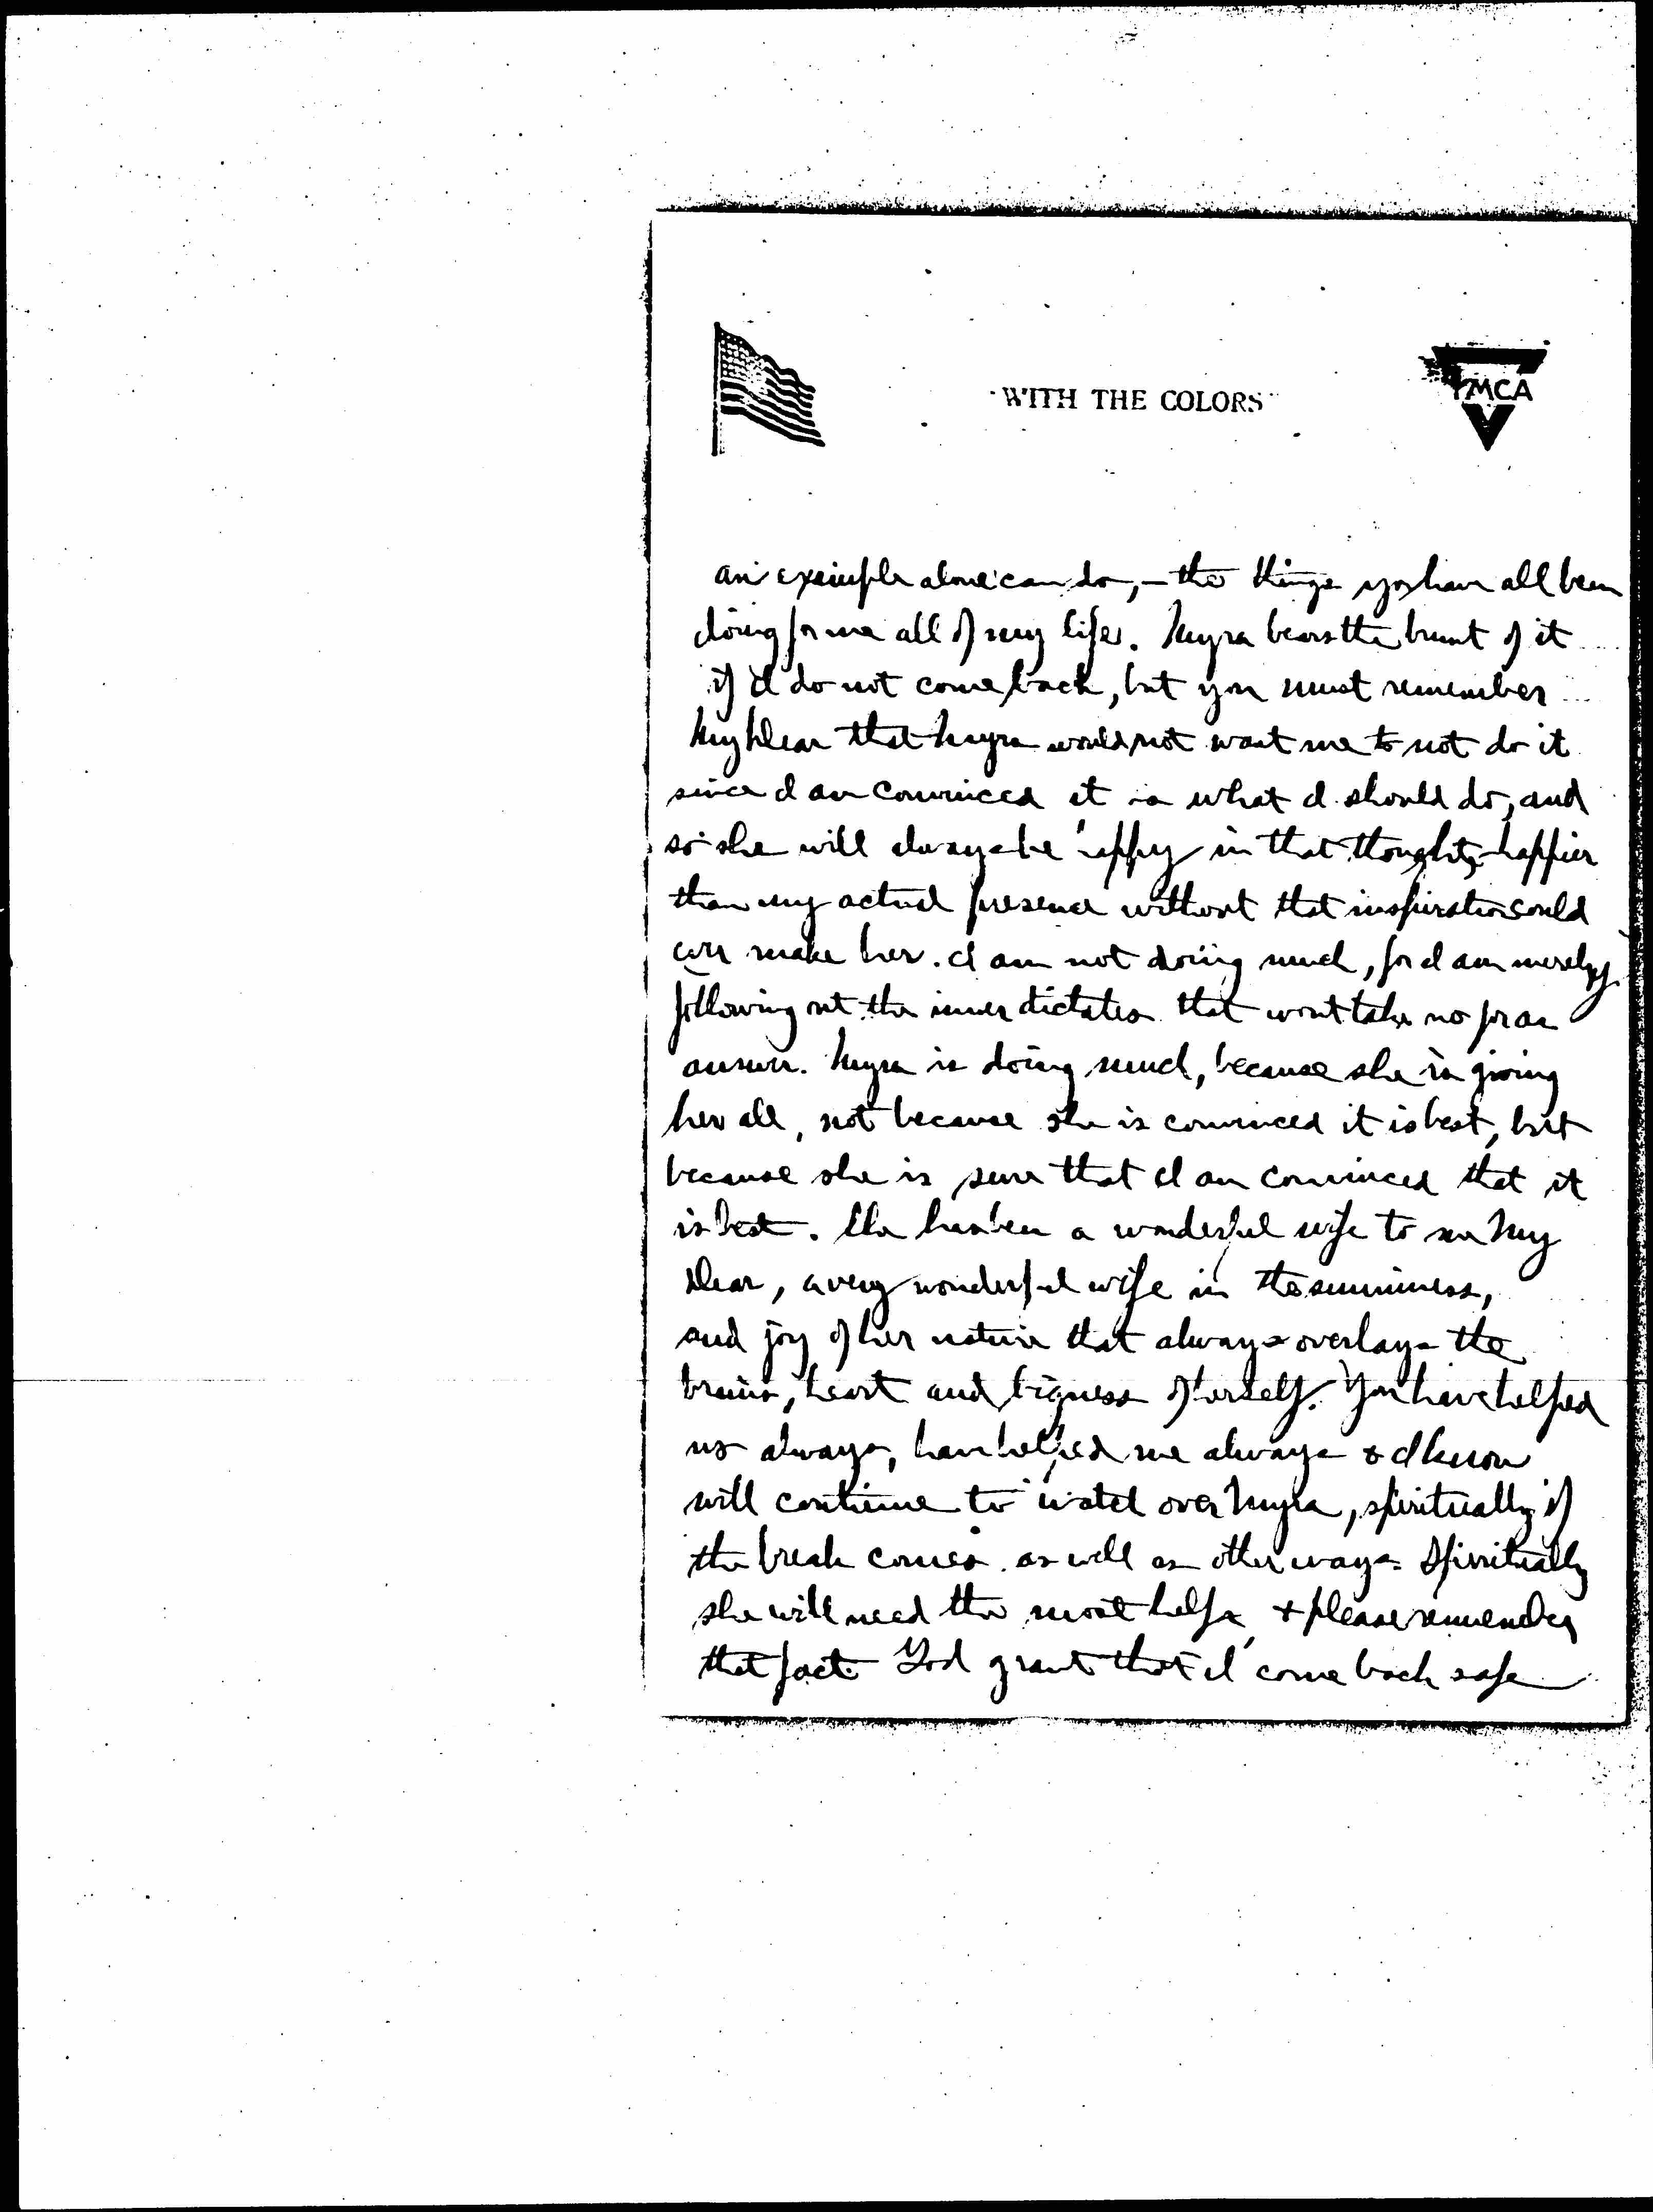 "WITH THE COLORS"
YMCA
an example alone can do, — the things you have all been
doing for me all of my life. Myra bears the brunt of it
if I do not come back, but you must remember
My Dear that Myra would not want me to not do it
since I am convinced it is what I should do, and
so she will always be happy in that thought, — happier
than my actual presence without that inspiration could
ever make her. I am not doing much, for I am merely
following out the inner dictates that wont take no for an
answer. Myra is doing much, because she is giving
her all, not because she is convinced it is best, but
because she is sure that I am convinced that it
is best. She has been a wonderful wife to me My
Dear, a very wonderful wife in the sunniness,
and joy of her nature that always overlays the
brains, heart and bigness of herself. You have helped
us always, have helped me always & I know
will continue to watch over Myra, spiritually if
the break comes as well as other ways. Spiritually
she will need the most help & please remember
that fact. God grant that I come back safe